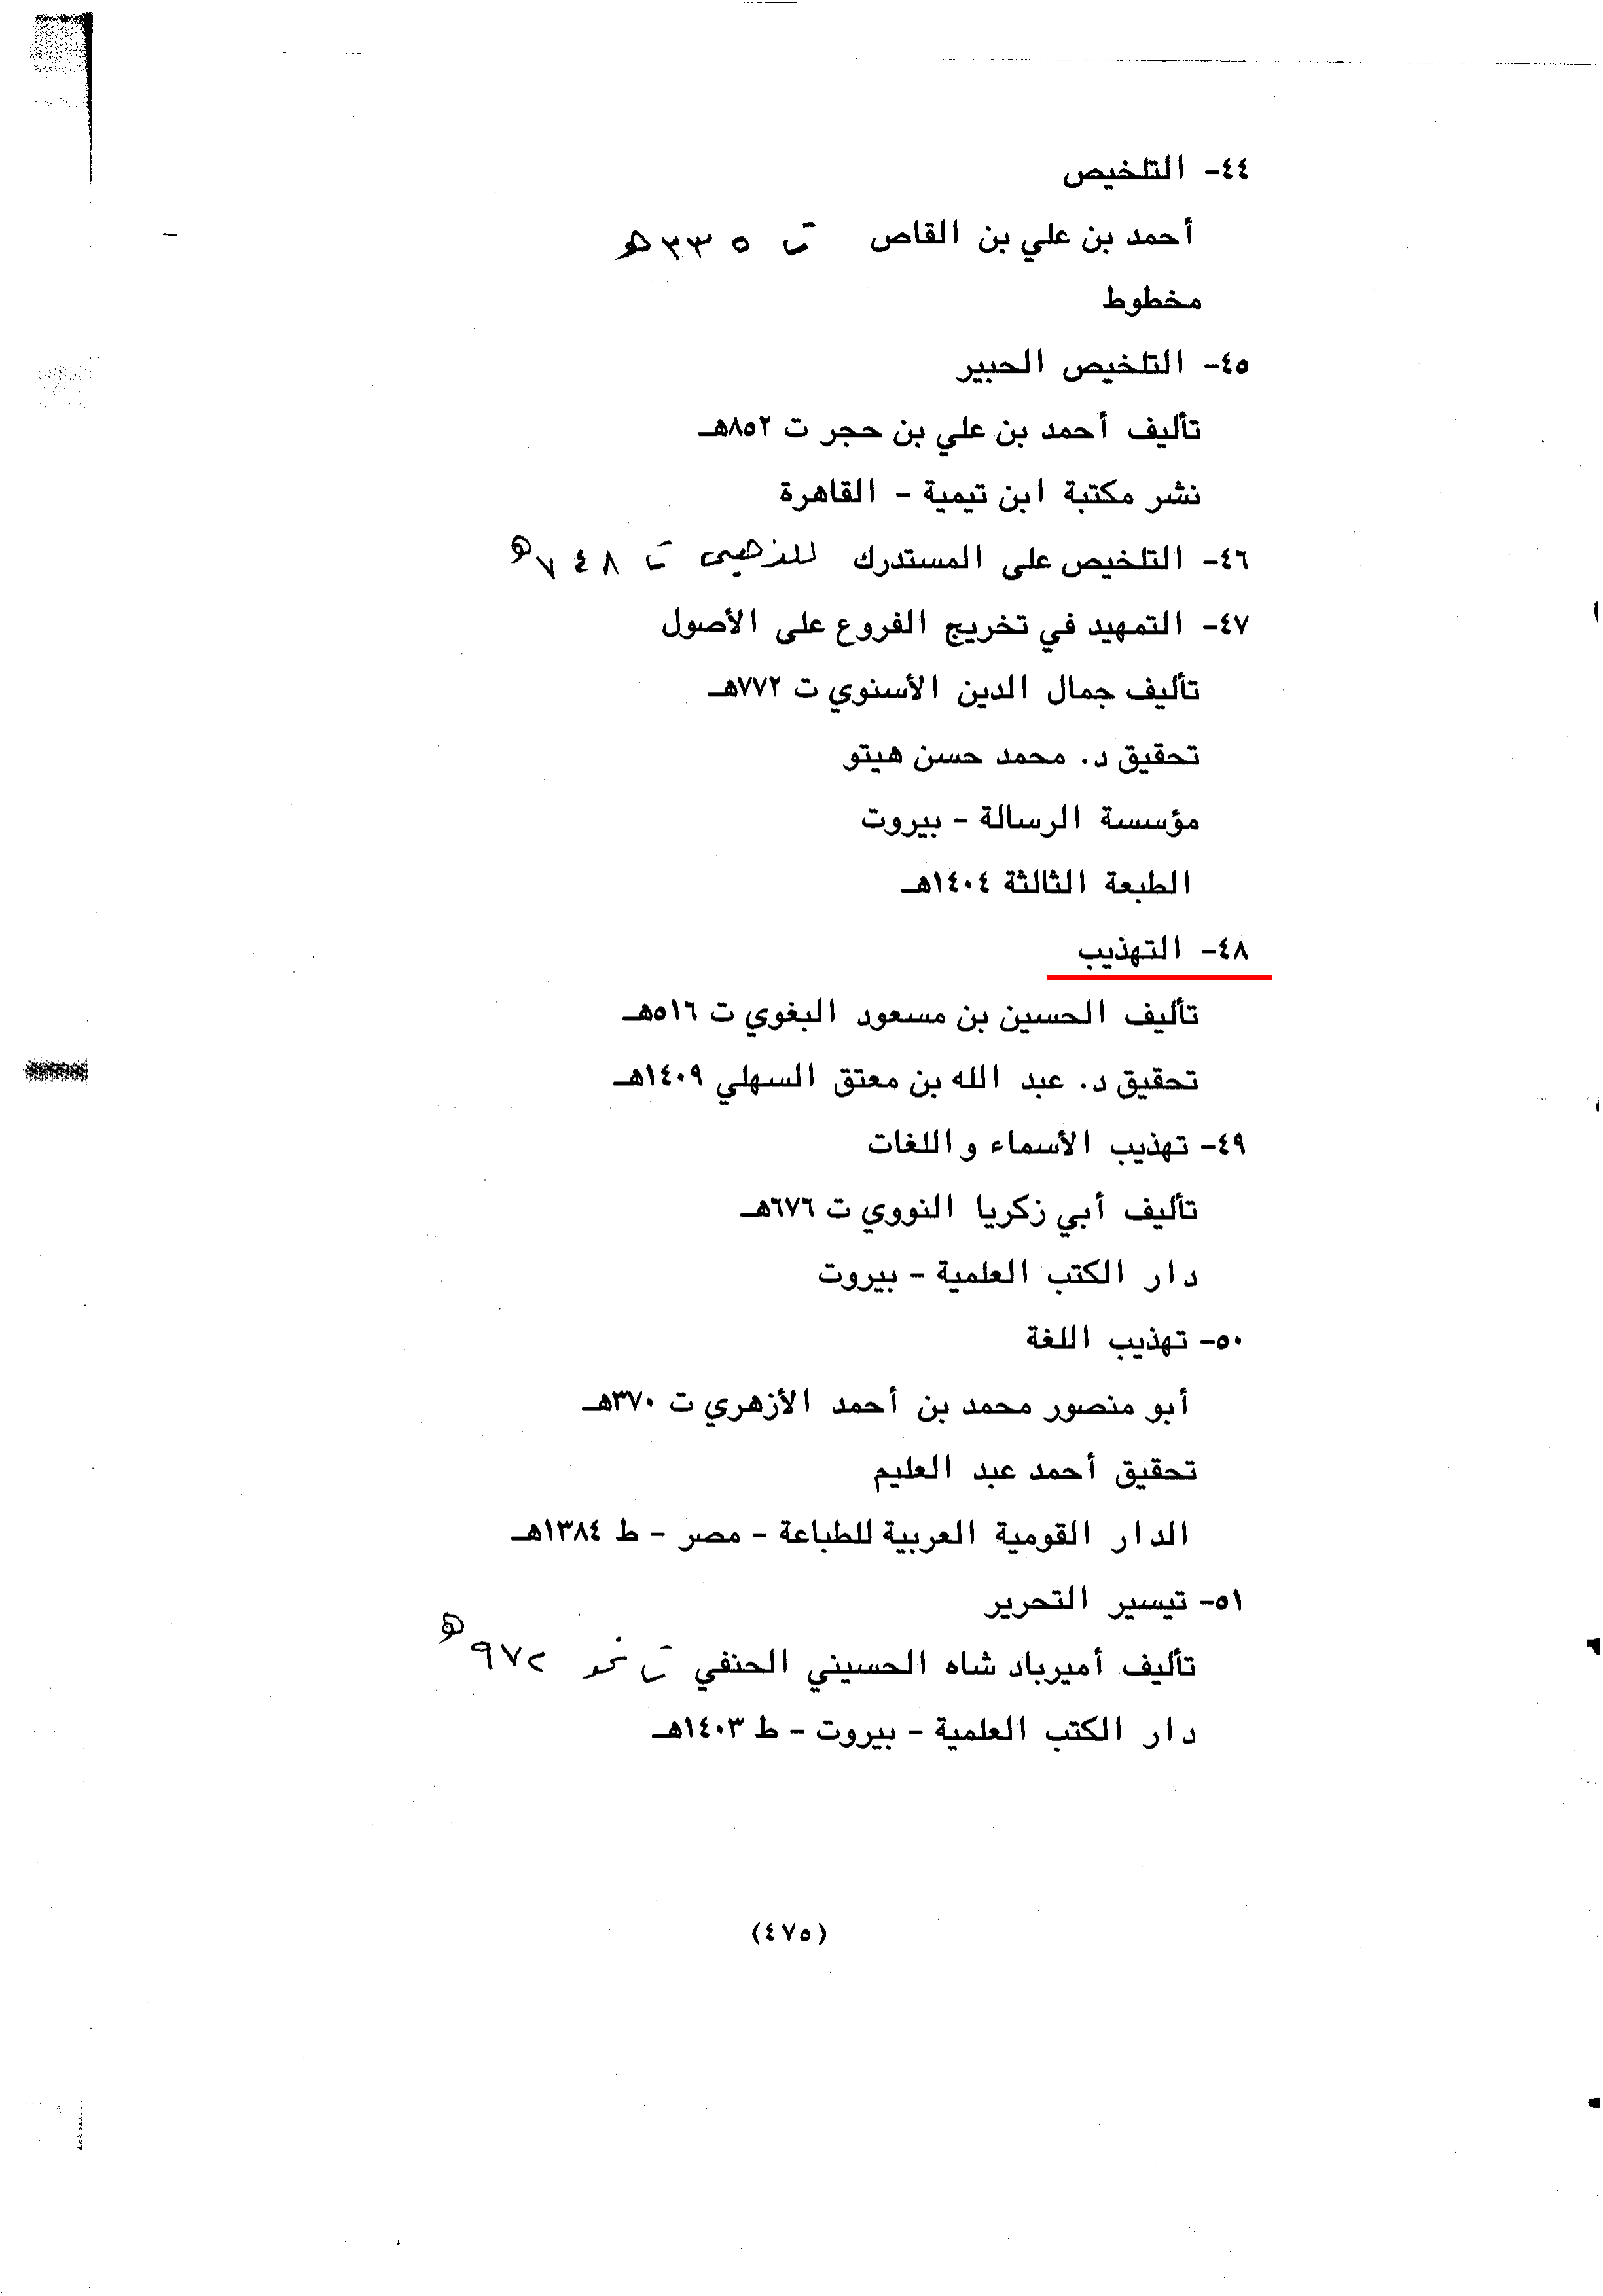 ٤٤- التلخيص
أحمد بن علي بن القاص ت ٣٣٥ هـ
مخطوط
٤٥- التلخيص الحبير
تأليف أحمد بن علي بن حجر ت ٨٥٢هـ
نشر مكتبة ابن تيمية - القاهرة
٤٦- التلخيص على المستدرك للذهبي ت ٧٤٨ هـ
٤٧- التمهيد في تخريج الفروع على الأصول
تأليف جمال الدين الأسنوي ت ٧٧٢هـ
تحقيق د. محمد حسن هيتو
مؤسسة الرسالة - بيروت
الطبعة الثالثة ١٤٠٤هـ
٤٨- التهذيب
تأليف الحسين بن مسعود البغوي ت ٥١٦هـ
تحقيق د. عبد الله بن معتق السهلي ١٤٠٩هـ
٤٩- تهذيب الأسماء واللغات
تأليف أبي زكريا النووي ت ٦٧٦هـ
دار الكتب العلمية - بيروت
٥٠- تهذيب اللغة
أبو منصور محمد بن أحمد الأزهري ت ٣٧٠هـ
تحقيق أحمد عبد العليم
الدار القومية العربية للطباعة - مصر - ط ١٣٨٤هـ
٥١- تيسير التحرير
تأليف أميرباد شاه الحسيني الحنفي ت نحو ٩٧٢ هـ
دار الكتب العلمية - بيروت - ط ١٤٠٣هـ
(٤٧٥)